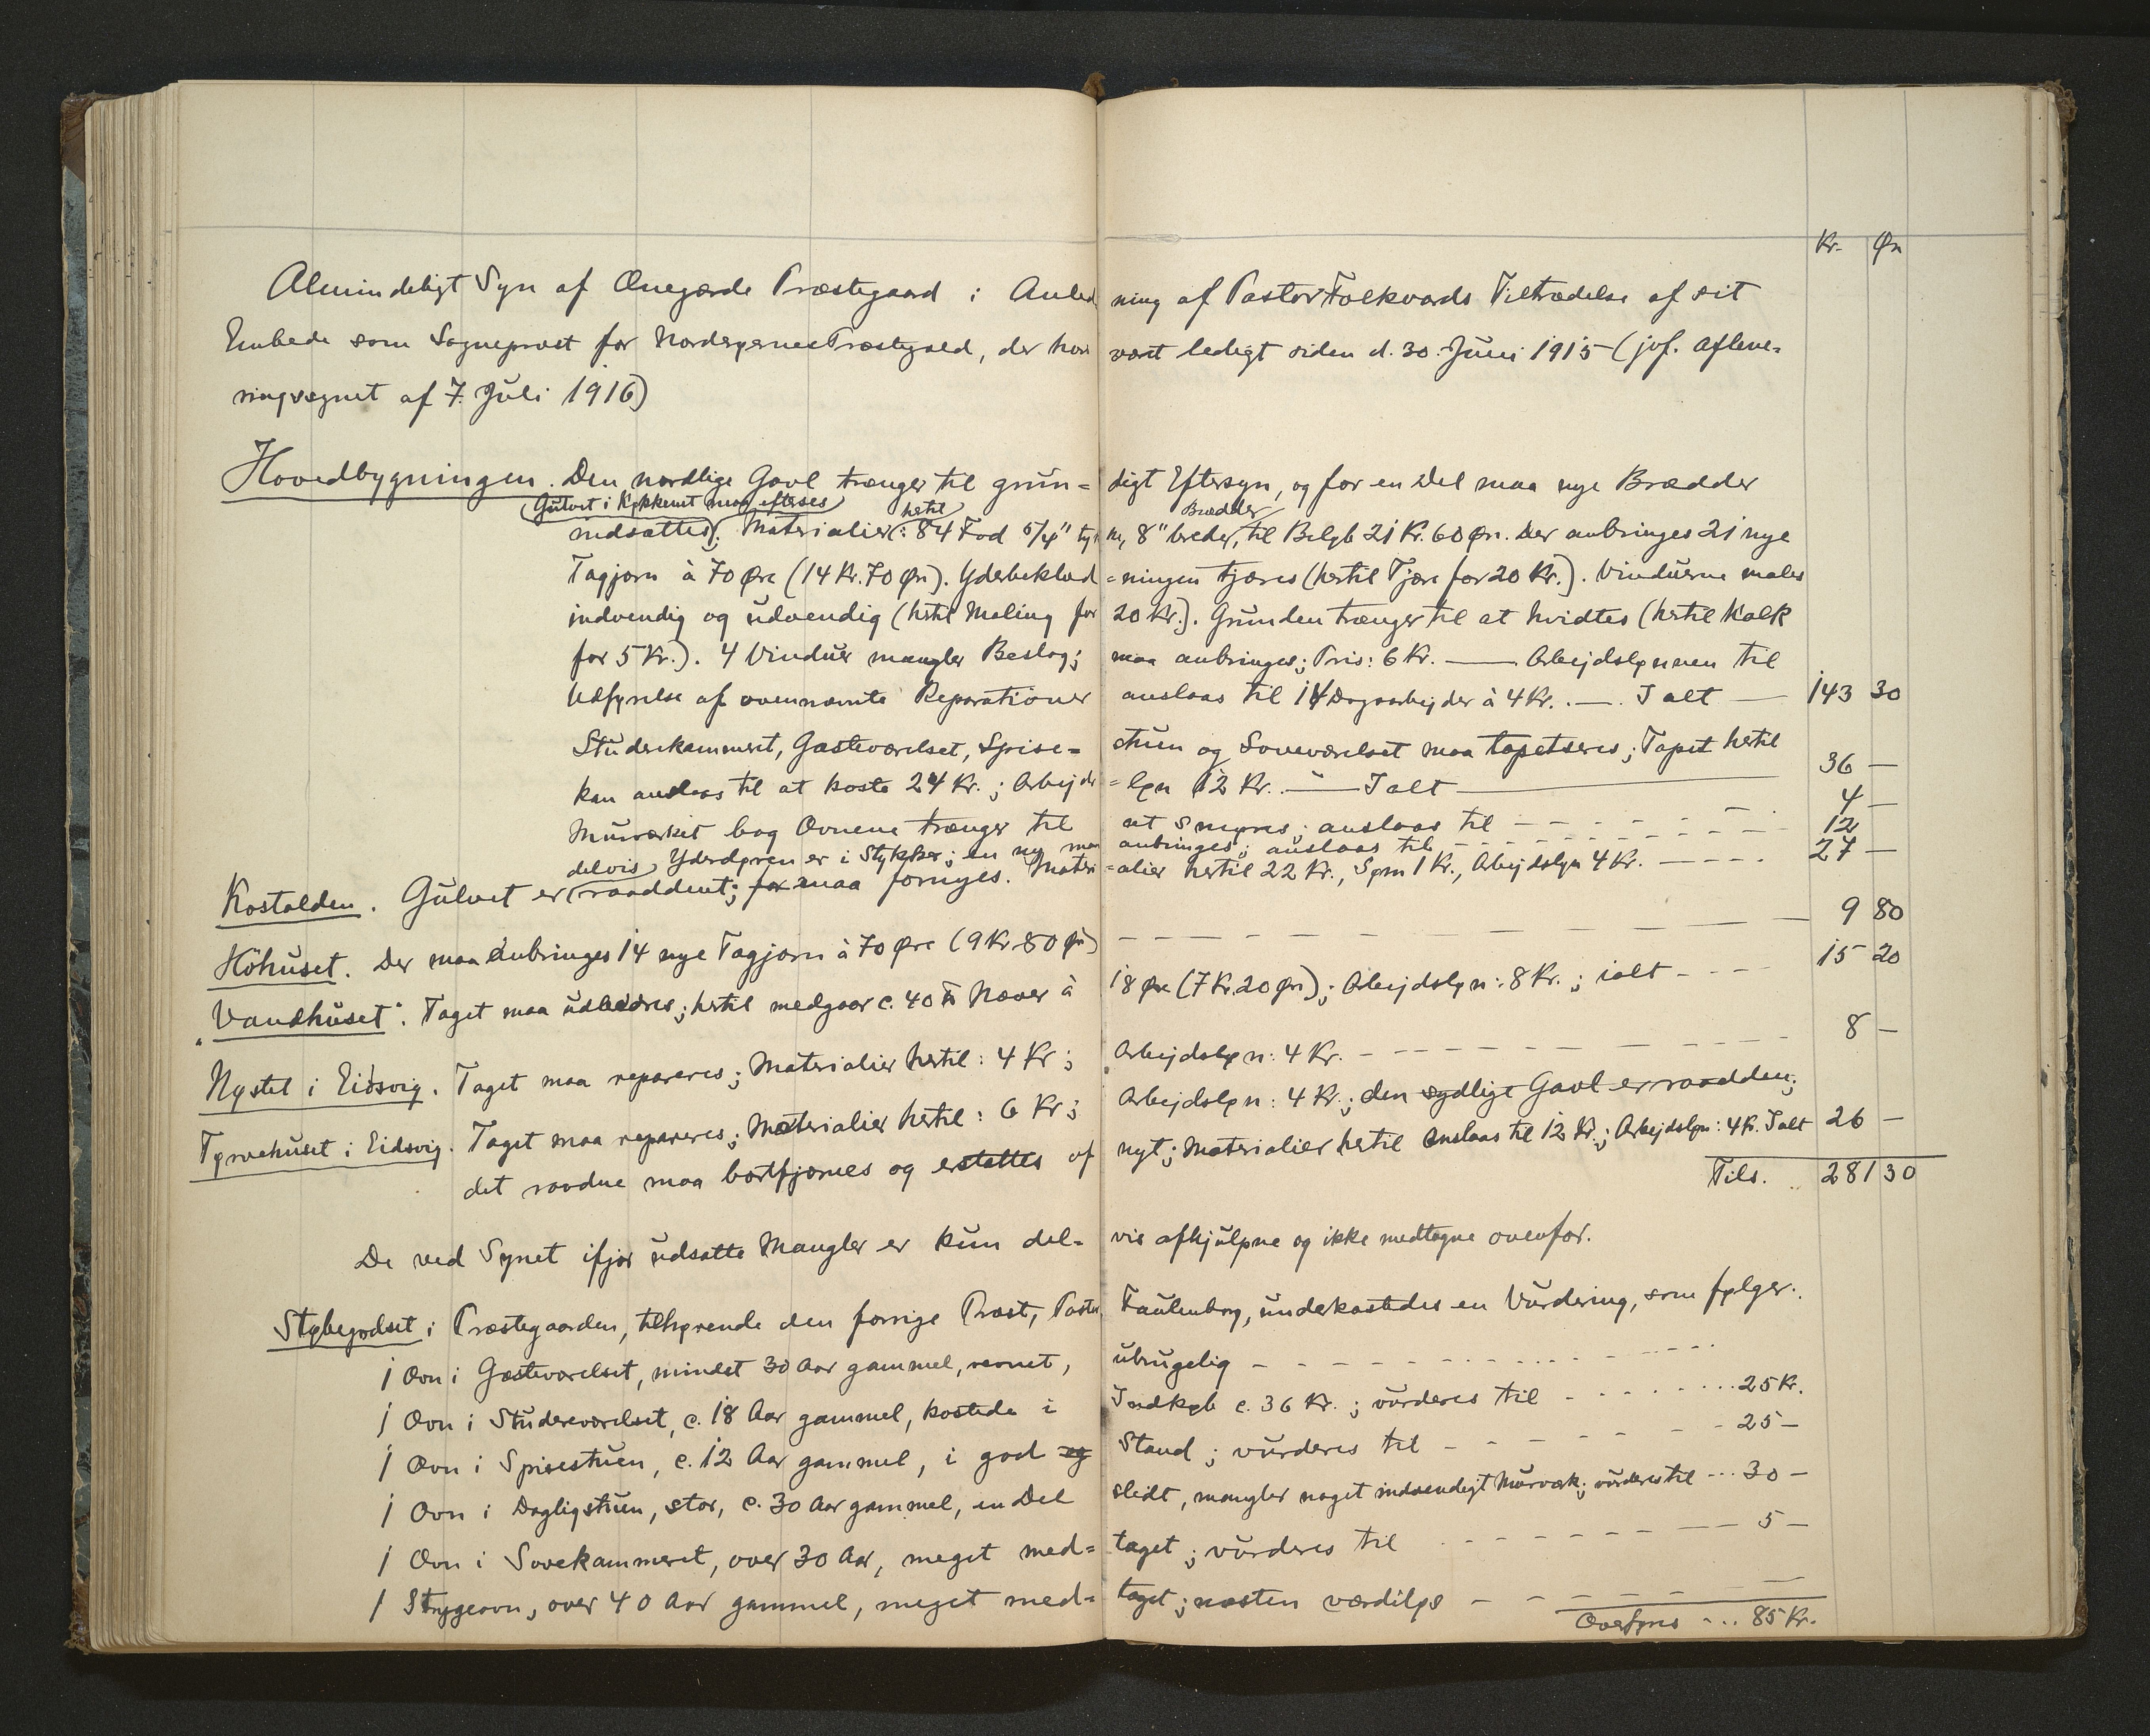 Kr. Øre
Almindeligt Syn af Onegærde Præstegaard i Anledning af Pastor Folkvards Tiltrædelse af sit
Embede som Sognepræst for Nordøernes Præstegæld, der har været ledigt siden d. 30. Juni 1915 (jvf. Afleve=
ringssynet af 7. Juli 1916)
Hovedbygningen. Den nordlige Gavl trænger til grun= digt Eftersyn, og for en Del maa nye Brædder
(Gulvet i Køkkenet maa efterses) hertil Brædder
indsættes. Materialier: 84 Fod 5/4" tykke, 8" breder, til Beløb 21 Kr. 60 Øre. Der anbringes 21 nye
Tagjærn à 70 Øre (14 Kr. 70 Øre). Yderbeklæd=ningen tjæres (hertil Tjære for 20 Kr.). Vinduerne males
indvendig og udvendig (hertil Maling for 20 Kr.). Grunden trænger til at hvidtes (hertil Kalk
for 5 Kr.). 4 Vinduer mangler Beslag; maa anbringes; Pris: 6 Kr. — Arbejdslønnen til
Udførelse af ovennævnte Reparationer anslaas til 14 Dagsarbejder à 4 Kr. — Ialt — 143 30
Studerekammeret, Gæsteværelset, Spise= stuen og Soveværelset maa tapetseres; Tapet hertil
kan anslaas til at koste 24 Kr.; Arbejds=løn 12 Kr. — Ialt — 36 —
Murværket bag Ovnene trænger til at smøres; anslaas til - - - 4 —
Yderdøren er i Stykker; en ny maa anbringes; anslaas til - - - 12
delvis
Kostalden. Gulvet er raaddent; maa fornyes. Materi=alier hertil 22 Kr., Søm 1 Kr., Arbejdsløn 4 Kr. - - - 27 —
Höhuset. Der maa anbringes 14 nye Tagjærn à 70 Øre (9 Kr. 80 Øre) - - - 9 80
"Vandhuset". Taget maa udbedres; hertil medgaar c. 40 Næver à 18 Øre (7 Kr. 20 Øre); Arbejdsløn: 8 Kr.; ialt - - - 15 20
Nystel i Eidsvig. Taget maa repareres; Materialier hertil: 4 Kr; Arbejdsløn: 4 Kr. - - - 8 —
Tørvehuset i Eidsvig. Taget maa repareres; Materialier hertil: 6 Kr; Arbejdsløn: 4 Kr.; den sydlige Gavl er raadden;
det raadne maa bortfjærnes og erstattes af nyt; Materialier hertil anslaas til 12 Kr.; Arbejdsløn: 4 Kr. Ialt 26 —
Tils. 281 30
De ved Synet ifjor udsatte Mangler er kun del= vis afhjulpne og ikke medtagne ovenfor.
Støbegodset i Præstegaarden, tilhørende den forrige Præst, Pastor Faulenborg, underkastedes en Vurdering, som følger.
1 Ovn i Gæsteværelset, mindst 30 Aar gammel, revnet, ubrugelig - - -
1 Ovn i Studereværelset, c. 18 Aar gammel, kostede i Indkøb c. 36 Kr.; vurderes til - - - 25 Kr.
1 Ovn i Spisestuen, c. 12 Aar gammel, i god Stand; vurderes til - - - 25 —
1 Ovn i Dagligstuen, stor, c. 30 Aar gammel, en Del slidt, mangler noget indvendigt Murværk; vurderes til - - - 30 —
1 Ovn i Sovekammeret, over 30 Aar, meget med= taget; vurderes til - - - 5 —
1 Strygeovn, over 40 Aar gammel, meget med= taget; næsten værdiløs - - - —
Overføres ... 85 Kr.